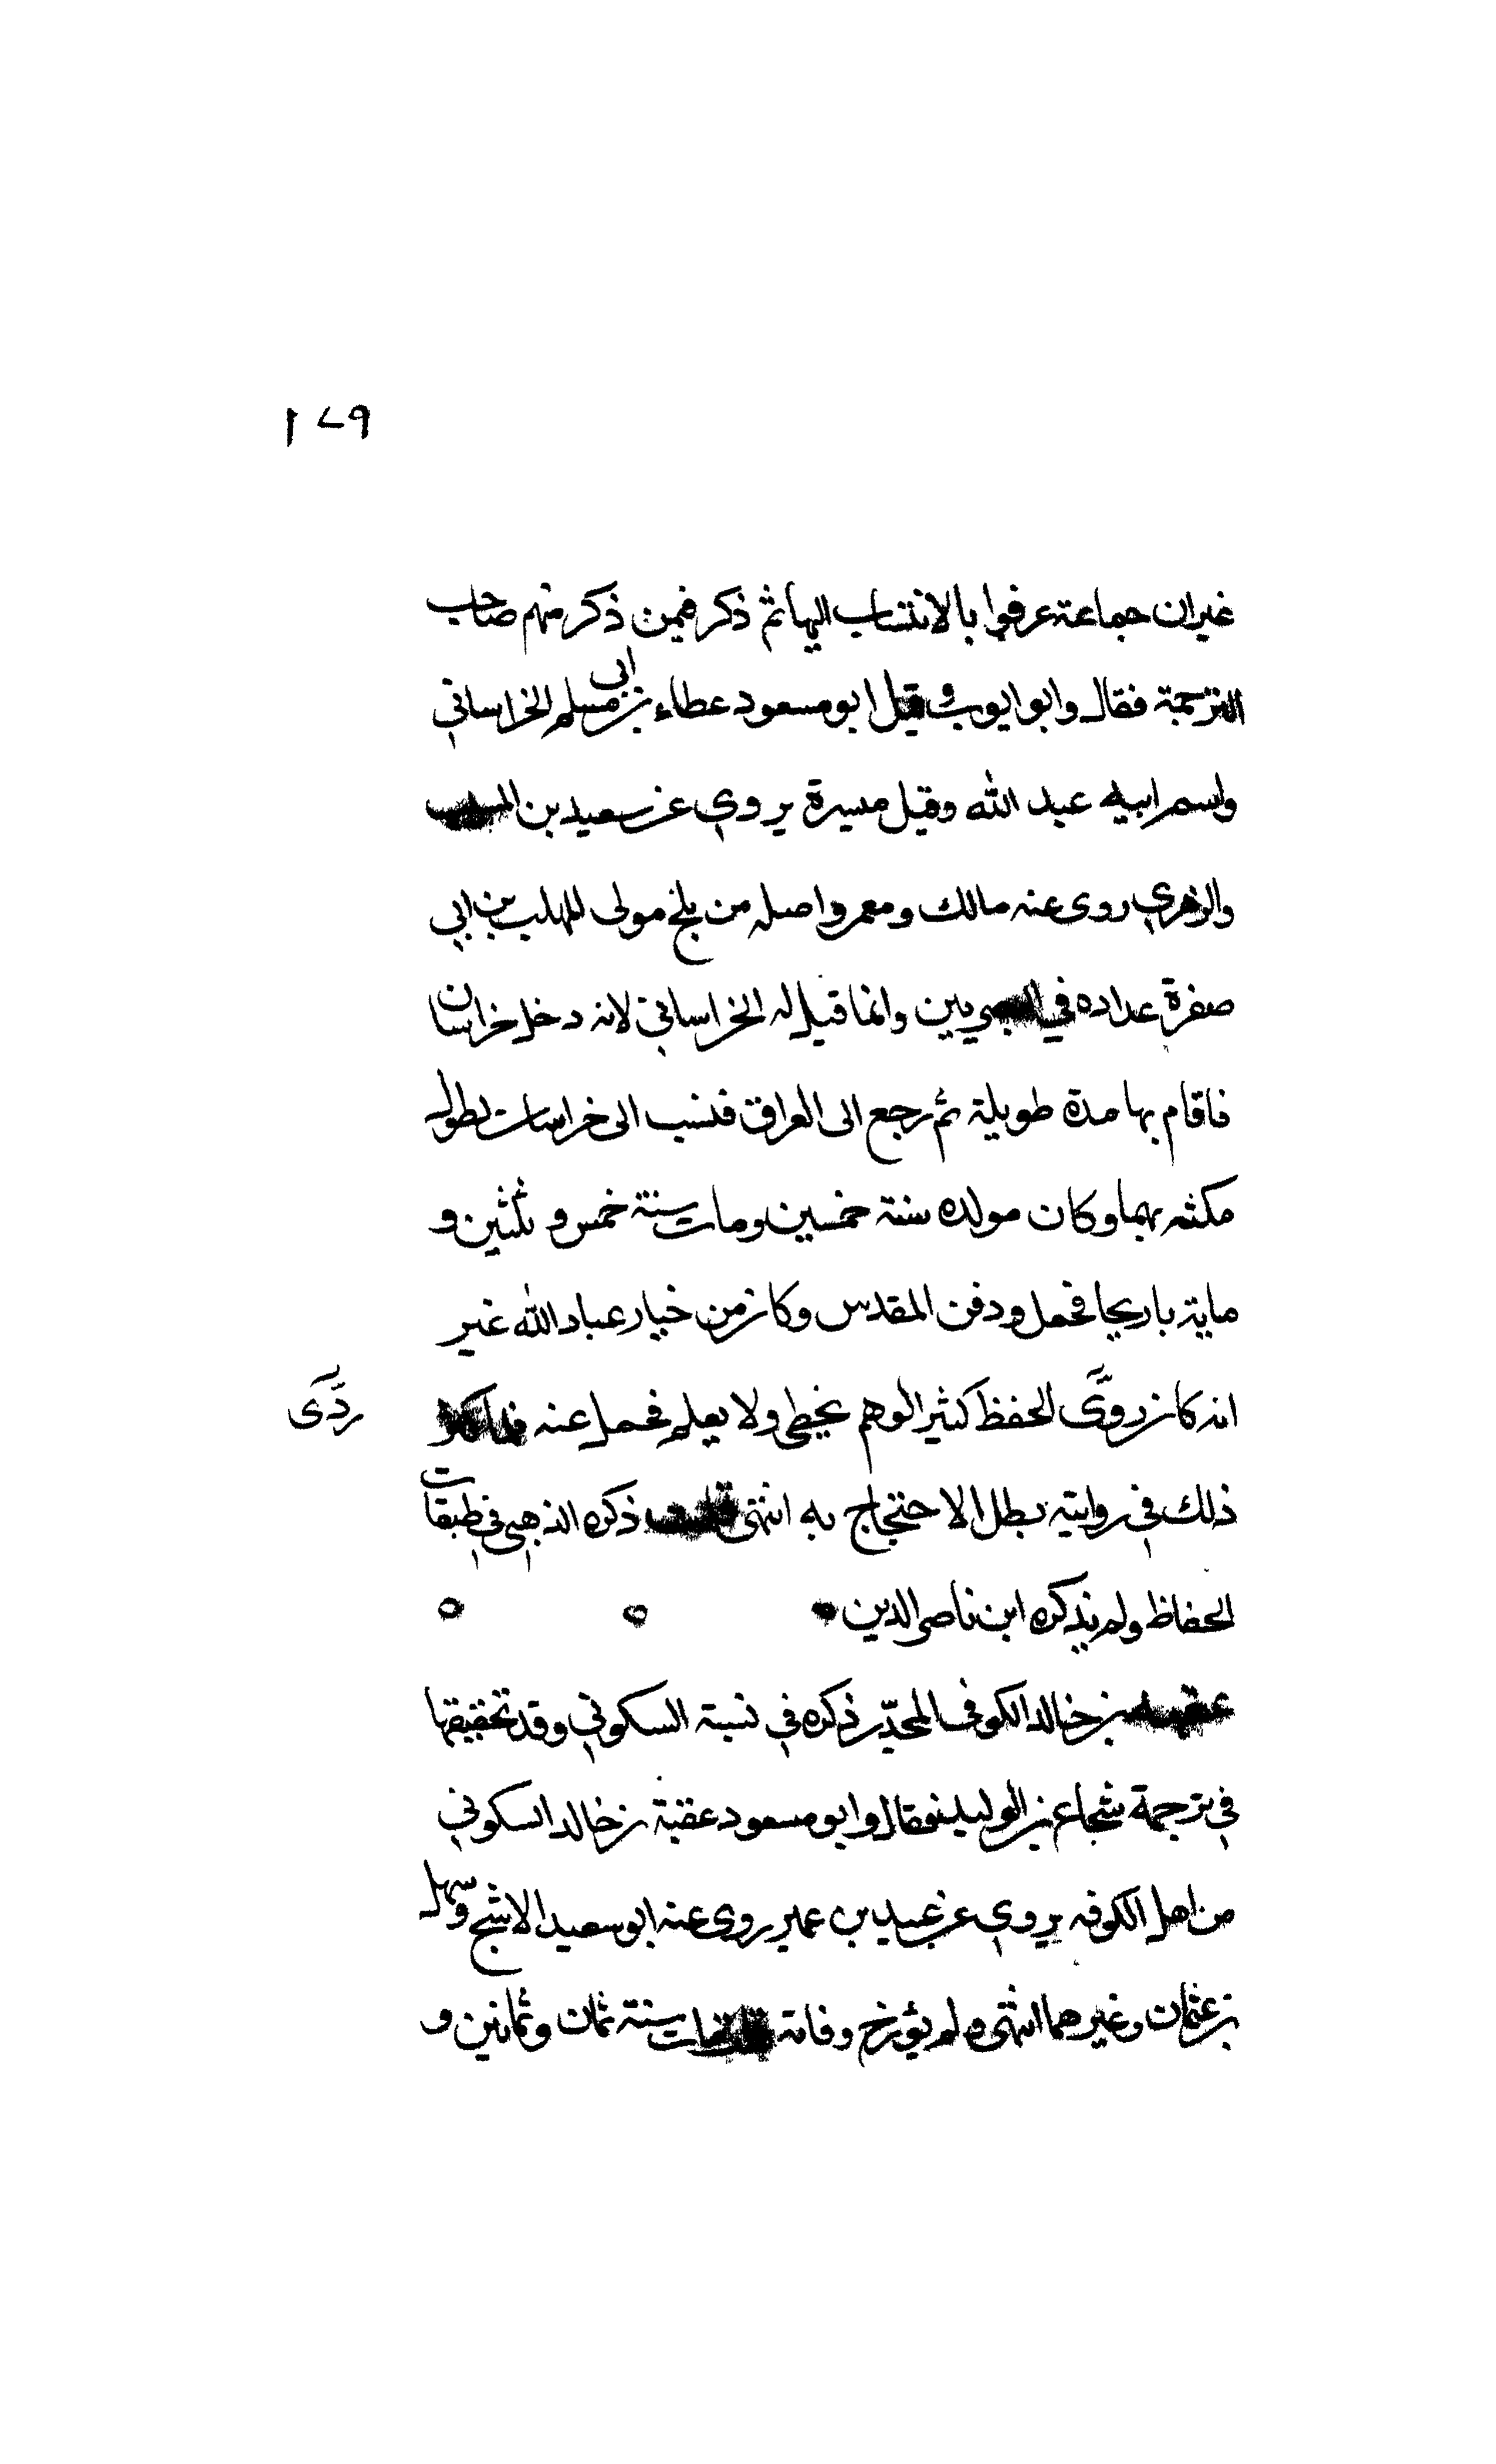 ١٧٩
غيران جماعة عرفوا بالانتساب اليها ثم ذكر فيمن ذكر منهم صاحب
الترجمة فقال وابو ايوب وقيل ابو مسعود عطاء بن ابي مسلم الخراساني
واسم ابيه عبد الله وقيل ميسرة يروي عن سعيد بن المسيب
والزهري روى عنه مالك ومعمر واصله من بلخ مولى للمهلب بن ابي
صفرة عداده في البصريين وانما قيل له الخراساني لانه دخل خراسان
فاقام بها مدة طويلة ثم رجع الى العراق فنسب الى خراسان لطول
مكثه بها وكان مولده سنة خمسين ومات سنة خمس وثلثين و
ماية باريحا فحمل ودفن المقدس وكان من خيار عباد الله غير
انه كان ردىَّ الحفظ كثير الوهم يخطي ولا يعلم فحمل عنه فلما كثر
ردَّى
ذلك في روايته بطل الاحتجاج به انتهى قلت ذكره الذهبي في طبقات
الحفاظ ولم يذكره ابن ناصر الدين
عقبة بن خالد الكوفي المجدّر ذكره في نسبة السكوني وقد تحقيقها
في ترجمة شجاع بن الوليد فقال وابو مسعود عقبة بن خالد السكوني
من اهل الكوفه يروي عن عبيد بن عمير روى عنه ابو سعيد الاشج وسهل
بن عثمان وغيرهما انتهى ولم يؤرخ وفاته قلت مات سنة ثمان وثمانين و